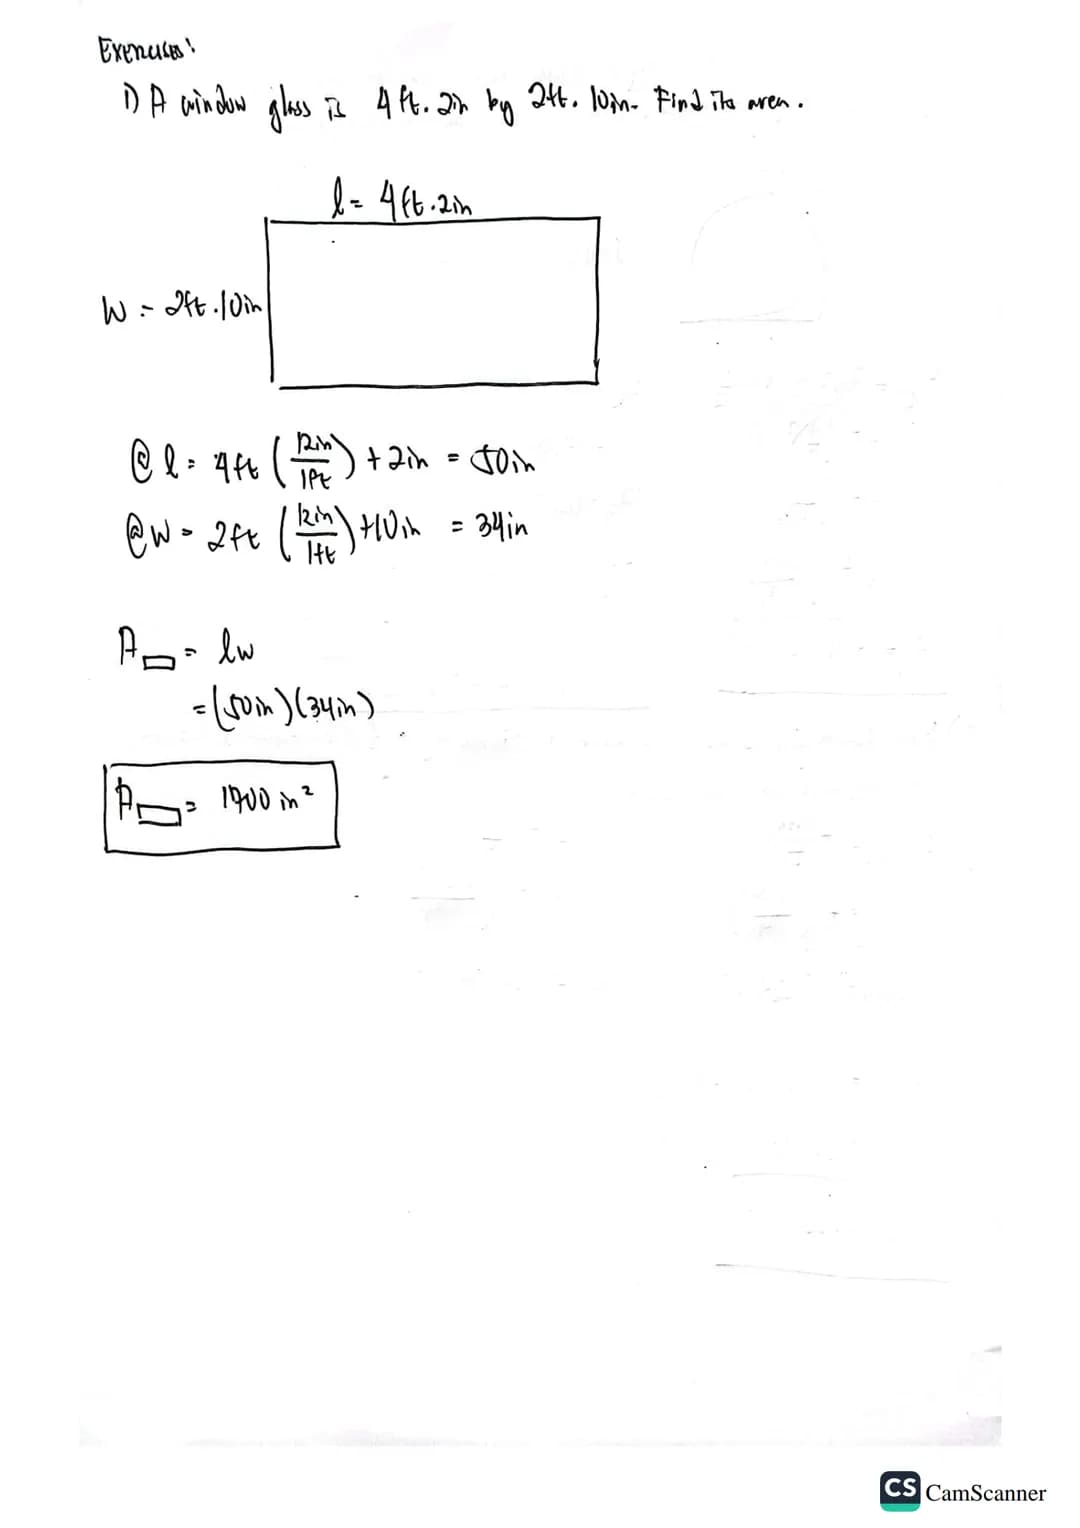 Exercises!
1) A window glass is 4 ft. 2in by 2ft. 10in. Find its area.
l = 4ft.2in
W = 2ft.10in
@ l = 4ft (12in/1ft) + 2in = 50in
@ W = 2ft (12in/1ft) + 10in = 34in
A▭ = lw
= (50in)(34in)
A▭ = 1700 in²
CS CamScanner